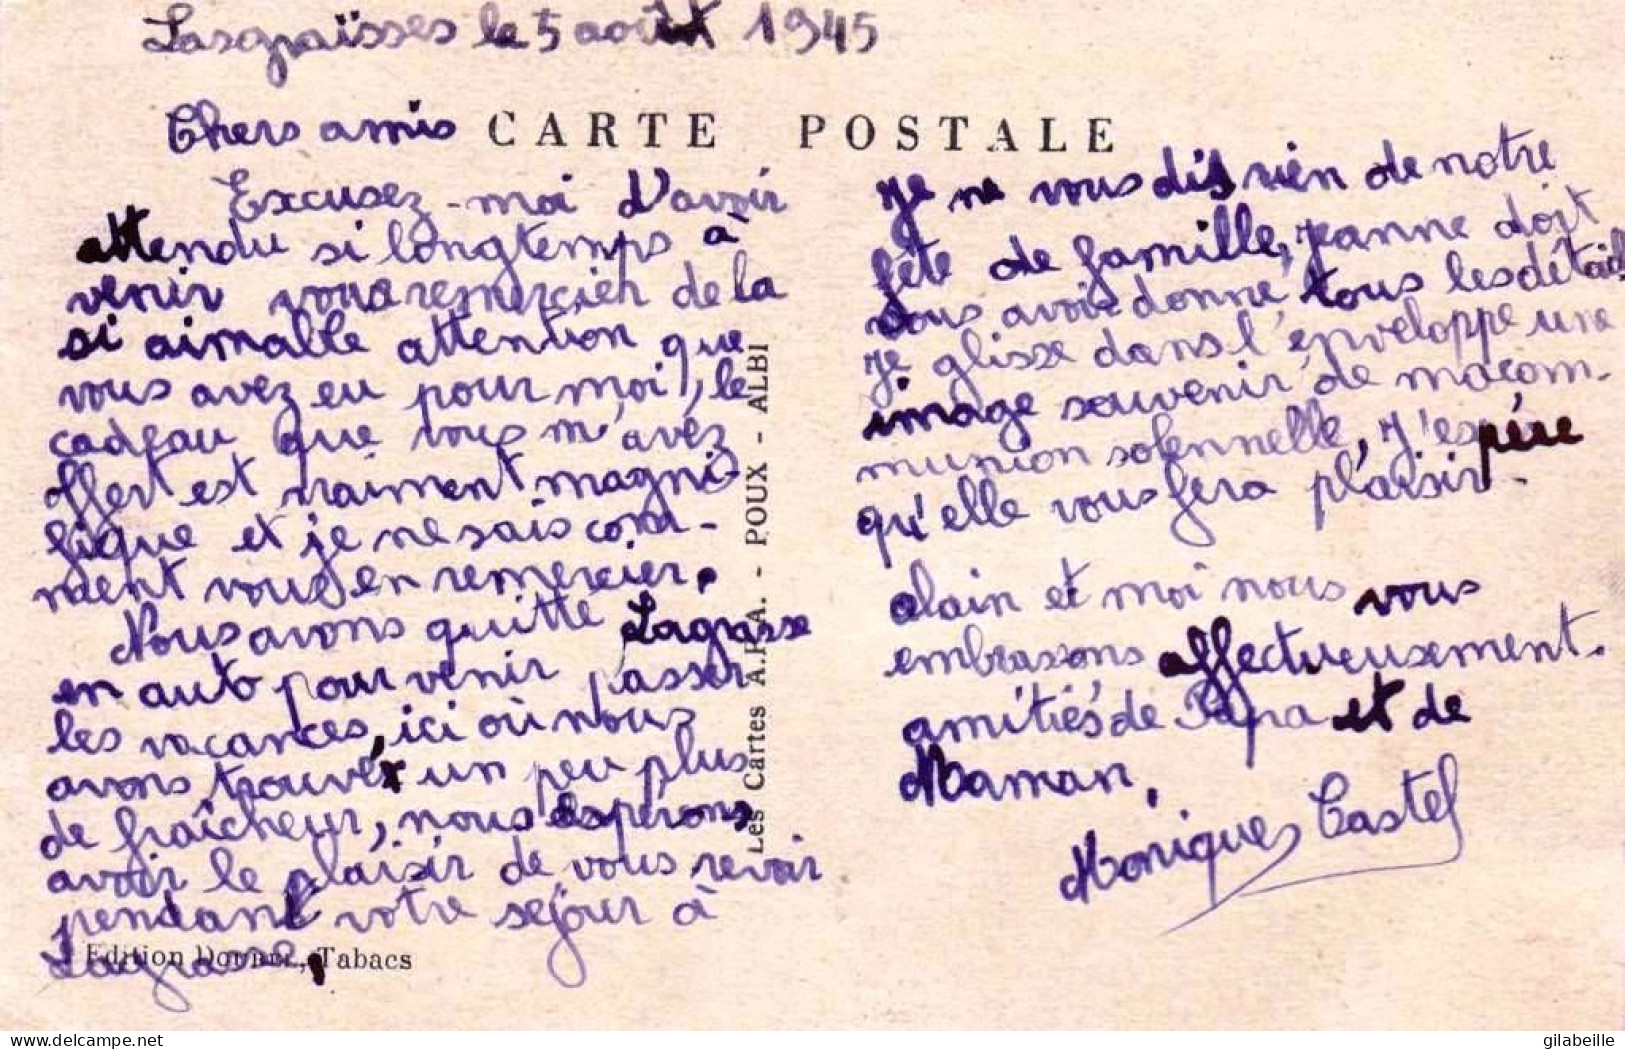 Lasgraïsses le 5 août 1945
Chers amis
CARTE POSTALE
Excusez-moi d'avoir
attendu si longtemps à
venir vous remercier de la
si aimable attention que
vous avez eu pour moi, le
cadeau que vous m'avez
offert est vraiment magni-
fique et je ne sais com-
ment vous en remercier.
Nous avons quitté Lagrasse
en auto pour venir passer
les vacances, ici où nous
avons trouvé un peu plus
de fraîcheur, nous espérons
avoir le plaisir de vous revoir
pendant votre séjour à
Lagrasse.
Edition Tabacs
Les Cartes A.P.A. - POUX - ALBI
Je ne vous dis rien de notre
fête de famille, Jeanne doit
vous avoir donné tous les détails
Je glisse dans l'enveloppe une
image souvenir de ma com-
munion solennelle, J'espère
qu'elle vous fera plaisir.
alain et moi nous vous
embrassons affectueusement.
amitiés de Papa et de
Maman.
Monique Castel
www.delcampe.net
gilabeille